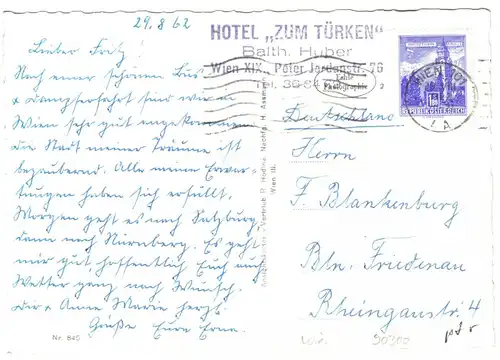 29.8.62
HOTEL „ZUM TÜRKEN"
Balth. Huber
Wien XIX., Peter Jordanstr. 76
Tel. 36-64
Echte
Photographie
Lieber Fritz!
Nach einer schönen Bus
& Dampferfahrt sind wir in
Wien sehr gut angekommen
die Stadt meiner Träume ist
bezaubernd. Alle meine Erwar-
tungen haben sich erfüllt,
Morgen geht es nach Salzburg,
dann nach Nürnberg. Es geht
mir gut, hoffentlich Euch auch,
Wetter ganz nach Wunsch.
Dir & Anne Marie herzl.
Grüße Eure Erna.
Nr. 845
Wien III.
WIEN
REPUBLIK ÖSTERREICH
Deutschland
Herrn
F. Blankenburg
Bln. Friedenau
Rheingaustr. 4